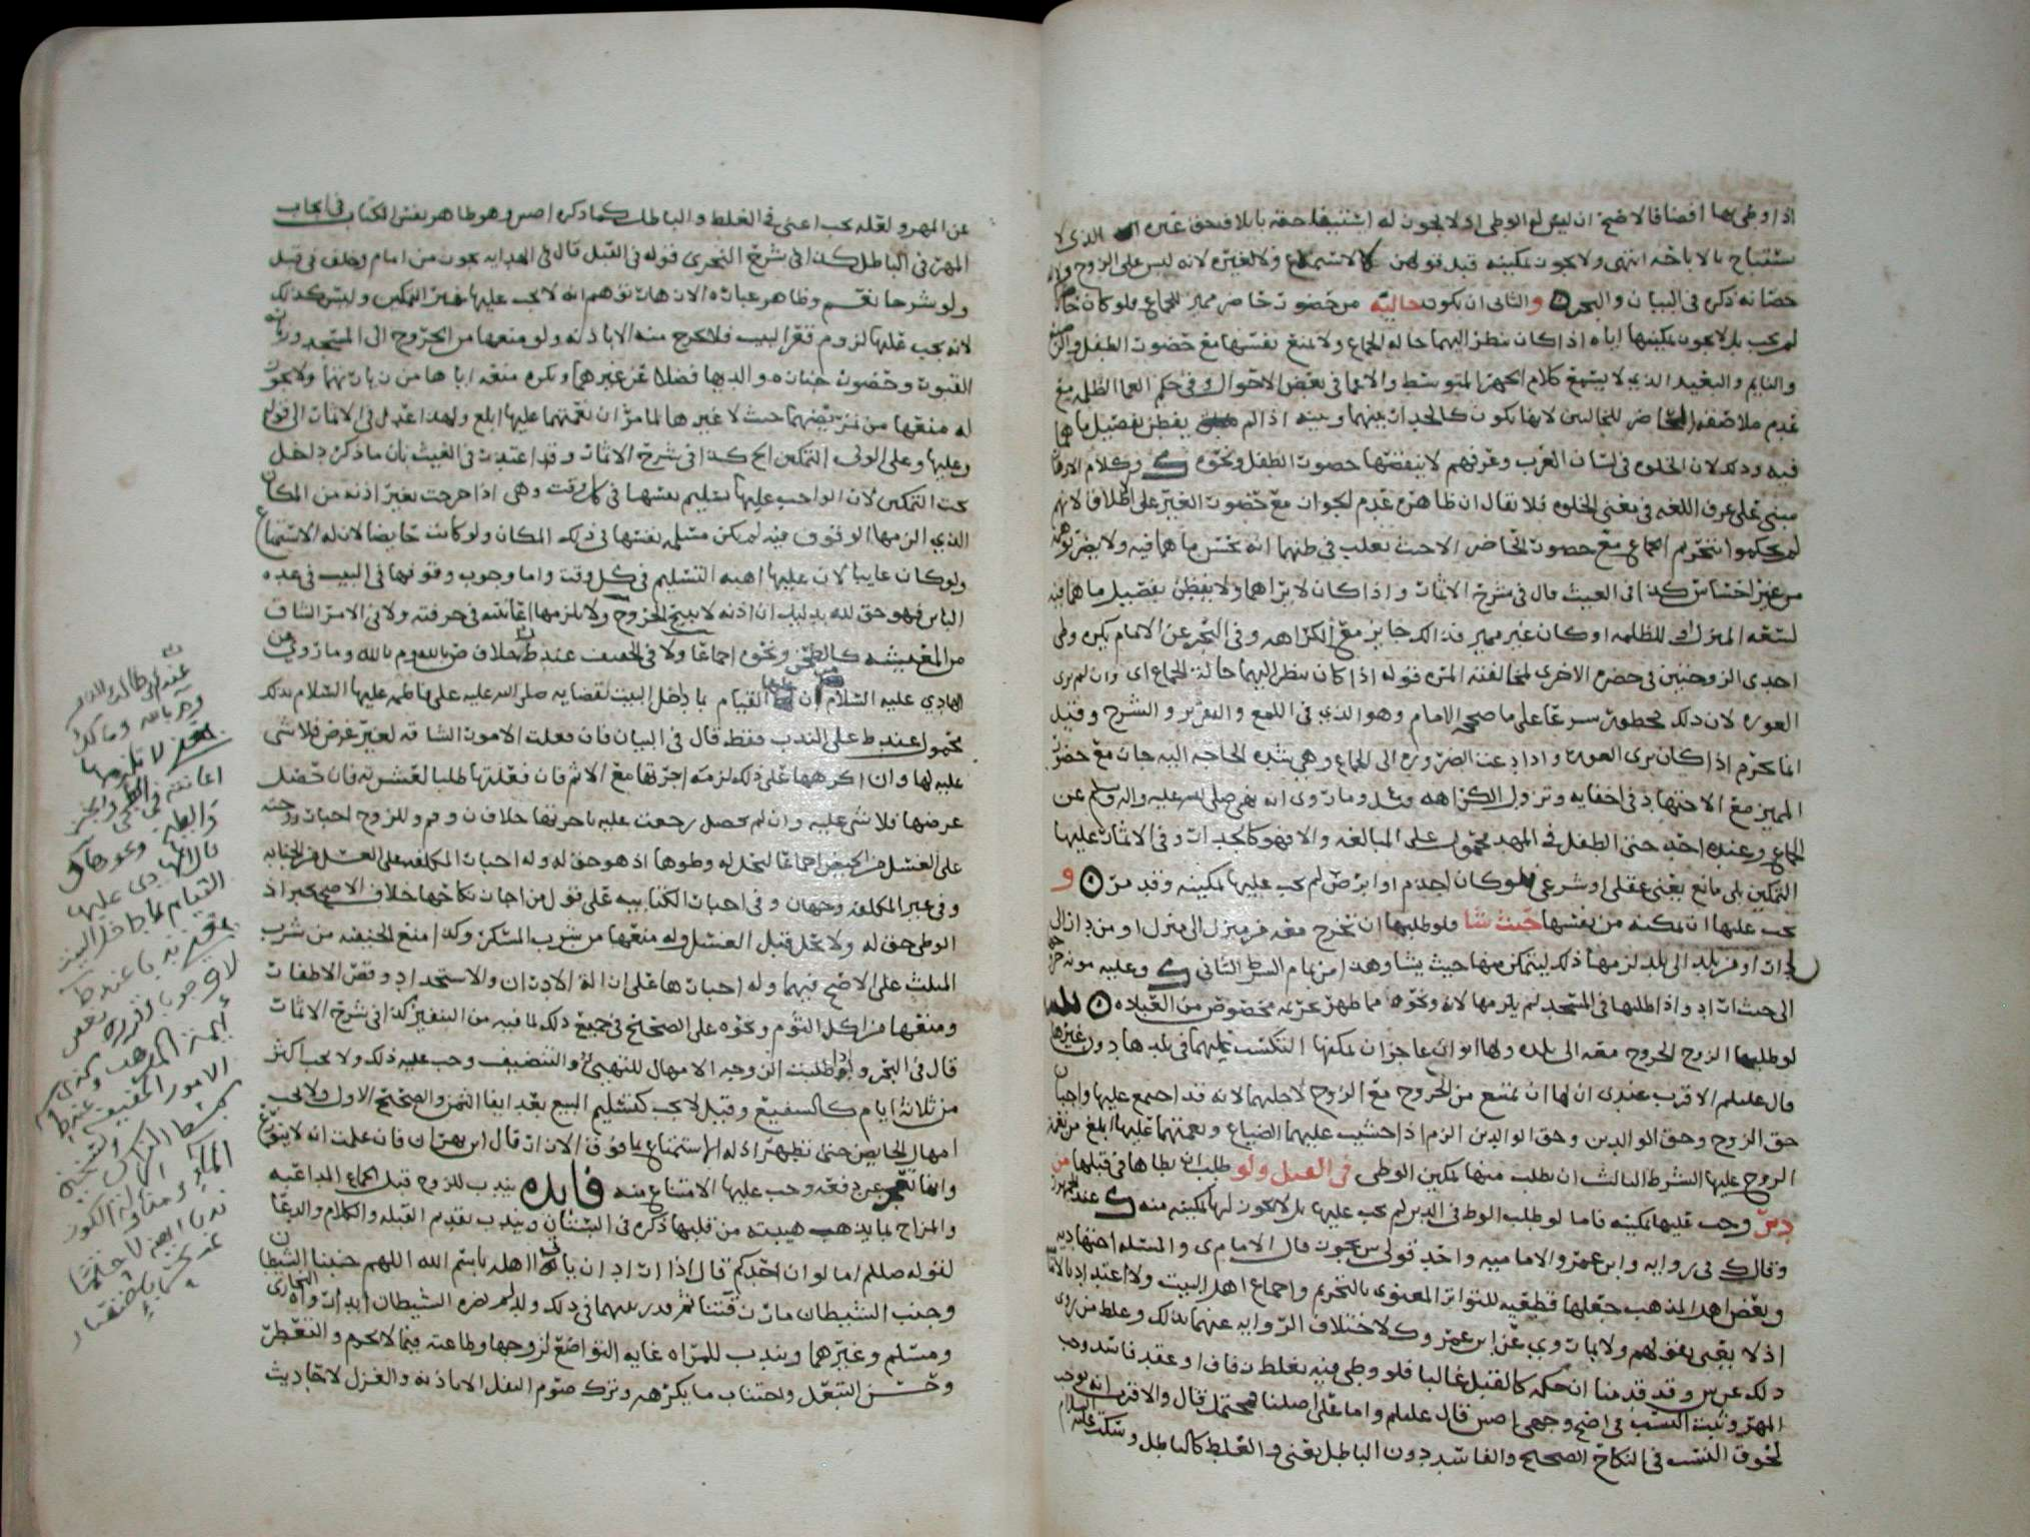 اذا وطى بها افضاها فالاصح ان ليس له الوطى اذ لا يجوز له استيفا حقه باتلاف حق غيره الذي لا
يستباح بالاباحه انتهى ولا يجوز تمكينه قبل قولهن الاستمتاع ولا لغيره لانه ليس على الزوج
حضانه ذكره في البيان والبحر والثاني ان تكون خاليه من حضور حاضر مميز للجماع فلو كان
لم يجب بل لا يجوز تمكينها اياه اذا كان ينظر اليهما حاله الجماع ولا تمنع نفسها مع حضور الطفل
والنايم والبعيد الذي لا يسمع كلام الجهر المتوسط والاعمى في بعض الاحوال وفي حكم العما الظلمه مع
عدم ملاصقه الحاضر للمجالس لانها تكون كالجدار بينهما وبينه اذا لم يفطن تفصيل ما هما
فيه وذلك لان الخلوه في لسان العرب وعرفهم لا ينقضها حضور الطفل ونحوه وكلام
مبني على عرف اللغه في معنى الخلوه فلا يقال ان ظاهره عدم الجواز مع حضور الغير على اطلاق لانهم
لم يحكموا بتحريم الجماع مع حضور الحاضر الا حيث يغلب في ظنهما انه يحس ما هما فيه ولا يضر
من غير احساس كذا في الغيث قال في شرح الاثمار واذا كان لا يراهما ولا يفطن تفصيل ما هما فيه
لسعه المنزل او للظلمه او كان غير مميز فذلك جايز مع الكراهه وفي البحر عن الامام يكره وطى
احدى الزوجتين في حضره الاخرى لمخالفته المروه قوله اذا كان ينظر اليهما حالة الجماع اي وان لم يرى
العوره لان ذلك محظور شرعا على ما صححه الامام وهو الذي في اللمع والتقرير والشرح وقيل
انما يحرم اذا كان يرى العوره واذا دعت الضروره الى الجماع وهي شده الحاجه اليه جاز مع حضور
المميز مع الاجتهاد في اخفايه وتزول الكراهه وما روي انه نهى صلى الله عليه واله وسلم عن
الجماع وعنده احد حتى الطفل في المهد محمول على المبالغه والا فهو كالجدار وفي الاثمار عليها
التمكين بلا مانع يعني عقلي او شرعي فلو كان اجذم او ابرص لم يجب عليها تمكينه وقد مر و
يجب عليها ان تمكنه من نفسها حيث شا فلو طلبها ان تخرج معه من منزل الى منزل او من دار الى
دار او من بلد الى بلد لزمها ذلك ليتمكن منها حيث يشا وهذا من تمام الشرط الثاني وعليه مونه
الى حيث اراد واذا طلبها في المسجد لم يلزمها لانه ونحوه مما ظهر حرمه مخصوص من العباده
لو طلبها الزوج الخروج معه الى بلده ولها ابوان عاجزان يمكنها التكسب عليهما في بلدها دون غيرها
قال عليلم الاقرب عندي ان لها ان تمتنع من الخروج مع الزوج لاجلهما لانه قد اجتمع عليها واجبان
حق الزوج وحق الوالدين وحق الوالدين الزم اذا خشيت عليهما الضياع ونعمتهما عليها ابلغ من نعمة
الزوج عليها الشرط الثالث ان يطلب منها تمكين الوطى في القبل ولو طلب ان يطاها في قبلها من
دبر وجب عليها تمكينه فاما لو طلب الوط في الدبر لم يجب عليها بل لا يجوز لها تمكينه منه عند
وقالك في روايه وابن عمر والاماميه واحد قولي ش يجوز قال الامام ي والمسئله اجتهاديه
وبعض اهل المذهب جعلها قطعيه للتواتر المعنوي بالتحريم واجماع اهل البيت ولا اعتداد
اذ لا يعتبر بقولهم ولا بما روي عن ابن عمر وك لاختلاف الروايه عنهما بذلك وغلط من روى
ذلك عن ش وقد قدمنا ان حكمه كالقبل غالبا فلو وطى فيه بغلط او عقد فاسد وجب
المهر وثبت النسب في اصح وجهي اصش قال عليلم واما على اصلنا فمحتمل قال والاقرب انه يوجب
لحوق النسب في النكاح الصحيح والفاسد دون الباطل يعني والغلط كالباطل وسكت عليه السلام
عن المهر ولعله يجب اعني في الغلط والباطل كما ذكره اصش وهو ظاهر نفس الكتاب في ايجاب
المهر في الباطل كذا في شرح النجري قوله في القبل قال في الهدايه يجوز من امام وخلف في قبل
ولو شرحا نعم وظاهر عباره الازهار توهم انه لا يجب عليها غير التمكين وليس كذلك
لانه يجب عليها لزوم قعر البيت فلا تخرج منه الا باذنه وله منعها من الخروج الى المسجد وزياره
القبور وحضور جنازه والديها فضلا عن غيرهما ويكره منعه اياها من زيارتهما ولا يجوز
له منعها من تمريضهما حيث لا غيرها لما مر ان نعمتهما عليها ابلغ ولهذا عدل في الاثمار الى قوله
وعليها وعلى الولي التمكين الخ كذا في شرح الاثمار وقد اعتذر في الغيث بان ما ذكر دخل
تحت التمكين لان الواجب عليها تسليم نفسها في كل وقت وهي اذا خرجت بغير اذنه من المكان
الذي الزمها الوقوف فيه لم يكن مسلمه نفسها في ذلك المكان ولو كانت حايضا لان له الاستمتاع
ولو كان غايبا لان عليها اهبه التسليم في كل وقت واما وجوب وقوفها في البيت في عده
الباين فهو حق لله بدليل ان اذنه لا يبيح الخروج ولا يلزمها اعانته في حرفته ولا في الامر الشاق
من المعيشه كالطحن ونحوه اجماعا ولا في الخفيف عند ط خلاف ض بالله وم بالله وما روي عن
الهادي عليه السلام ان عليها القيام بما داخل البيت لقضايه صلى الله عليه على فاطمه عليها السلام بذلك
محمول عند ط على الندب فقط قال في البيان فان فعلت الامور الشاقه لغير غرض فلا شي
عليه لها وان اكرهها على ذلك لزمته اجرتها مع الاثم فان فعلتها طلبا لعشرته فان حصل
غرضها فلا شي عليه وان لم يحصل رجعت عليه باجرتها خلاف ن وقم وللزوج اجبار زوجته
على الغسل من الحيض اجماعا ليحل له وطوها اذ هو حق له وله اجبار المكلفه على الغسل من الجنابه
وفي غير المكلفه وجهان وفي اجبار الكتابيه على قول من اجاز نكاحها خلاف الاصح تجبر اذ
الوطى حق له ولا يحل قبل الغسل وله منعها من شرب المسكر وكذا منع الحنفيه من شرب
المثلث على الاصح فيهما وله اجبارها على ازالة الادران والاستحداد وقص الاظفار
ومنعها من اكل الثوم ونحوه على الصحيح في جميع ذلك لما فيه من التنفير كذا في شرح الاثمار
قال في البحر واذا طلبت الزوجه الامهال للتهيئ والتنظيف وجب عليه ذلك ولا يجب اكثر
من ثلاثة ايام كالشفيع وقيل لا يجب كتسليم المبيع بعد ايفا الثمن والصحيح الاول ولا يجب
امهال الحايض حتى تطهر اذ له الاستمتاع بما فوق الازار قال ابن بهران فان علمت انه لا يتورع
وانها تعجز عن دفعه وجب عليها الامتناع منه فايده يندب للزوج قبل الجماع المداعبه
والمزاح بما يذهب هيبته من قلبها ذكره في البستان ويندب تقديم القبله والكلام والدعا
لقوله صللم اما لو ان احدكم قال اذا اراد ان ياتي اهله باسم الله اللهم جنبنا الشيطان
وجنب الشيطان ما رزقتنا ثم قدر بينهما في ذلك ولد لم يضره الشيطان ابدا رواه البخاري
ومسلم وغيرهما ويندب للمراه غايه التواضع لزوجها وطاعته فيما لا يحرم والتعطر
وحسن التبعل واجتناب ما يكرهه وترك صوم النفل الا باذنه والغزل لاحاديث
عند ابي طالب
وم بالله ومالك
لا تلزمها
اعانته في
والطبخ ونحوها
الهادي عليها
القيام بما داخل البيت
عند ط